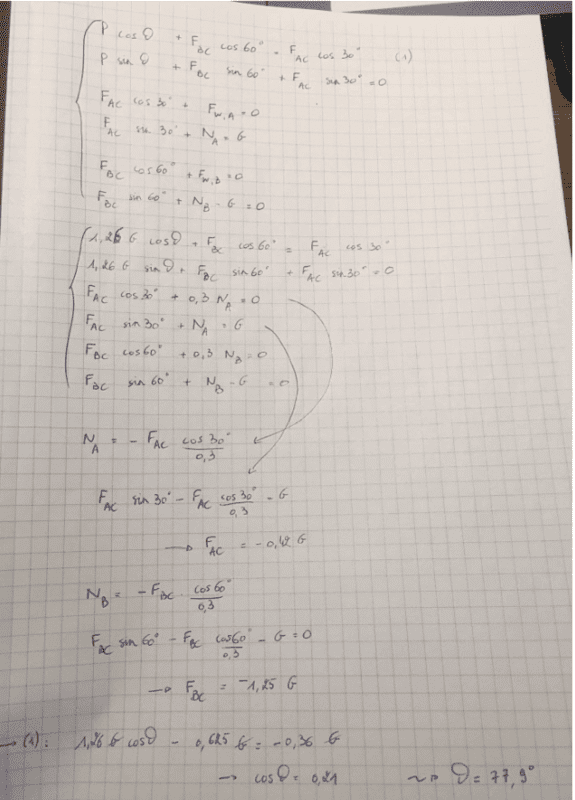 P cos ϑ + F_BC cos 60° = F_AC cos 30° (1)
P sin ϑ + F_BC sin 60° + F_AC sin 30° = 0
F_AC cos 30° + F_W,A = 0
F_AC sin 30° + N_A = G
F_BC cos 60° + F_W,B = 0
F_BC sin 60° + N_B - G = 0
1,26 G cos ϑ + F_BC cos 60° = F_AC cos 30°
1,26 G sin ϑ + F_BC sin 60° + F_AC sin 30° = 0
F_AC cos 30° + 0,3 N_A = 0
F_AC sin 30° + N_A = G
F_BC cos 60° + 0,3 N_B = 0
F_BC sin 60° + N_B - G = 0
N_A = - F_AC cos 30° / 0,3
F_AC sin 30° - F_AC cos 30° / 0,3 = G
→ F_AC = -0,42 G
N_B = - F_BC · cos 60° / 0,3
F_BC sin 60° - F_BC cos 60° / 0,3 - G = 0
→ F_BC = -1,25 G
→ (1): 1,26 G cos ϑ - 0,625 G = -0,36 G
→ cos ϑ = 0,21 ~> ϑ = 77,9°